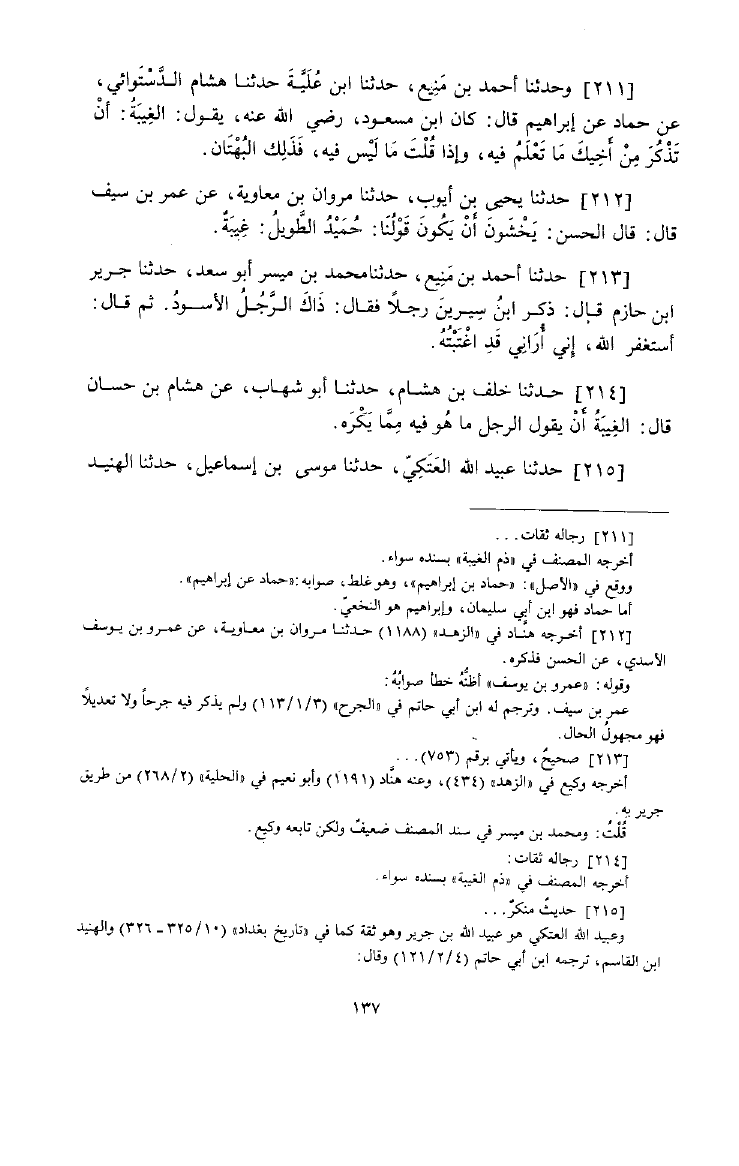 [٢١١] وحدثنا أحمد بن مَنِيع، حدثنا ابن عُلَيَّةَ حدثنـا هشام الـدَّسْتَوائي،
عن حماد عن إبراهيم قال: كان ابن مسعود، رضي الله عنه، يقـول: الغِيبَةُ: أنْ
تَذْكُرَ مِنْ أَخِيكَ مَا تَعْلَمُ فيه، وإذا قُلْتَ مَا لَيْس فيه، فَذَلِك البُهْتَان.
[٢١٢] حدثنا يحيى بن أيوب، حدثنا مروان بن معاوية، عن عمر بن سيف
قال: قال الحسن: يَخْشَونَ أَنْ يَكُونَ قَوْلُنَا: حُمَيْدُ الطَّويلُ: غِيبَةٌ.
[٢١٣] حدثنا أحمد بن مَنِيع، حدثنامحمد بن ميسر أبو سعد، حدثنا جرير
ابن حازم قـال: ذكـر ابنُ سِيـرينَ رجـلاً فقـال: ذَاكَ الـرَّجُـلُ الأسـودُ. ثم قـال:
أستغفر الله، إِني أُرَانِي قَدِ اغْتَبْتُهُ.
[٢١٤] حـدثنا خلف بن هشـام، حدثنـا أبو شهـاب، عن هشـام بن حسـان
قال: الغِيبَةُ أَنْ يقول الرجل ما هُو فيه مِمَّا يَكْرَه.
[٢١٥] حدثنا عبيد الله العَتَكِيّ، حدثنا موسى بن إسماعيل، حدثنا الهنيد
[٢١١] رجاله ثقات...
أخرجه المصنف في «ذم الغيبة» بسنده سواء.
ووقع في «الأصل»: «حماد بن إبراهيم»، وهو غلط، صوابه:«حماد عن إبراهيم».
أما حماد فهو ابن أبي سليمان، وإبراهيم هو النخعيّ.
[٢١٢] أخـرجه هنَّـاد في «الزهـد» (١١٨٨) حـدثنـا مـروان بن معـاويـة، عن عمـرو بن يـوسف
الأسدي، عن الحسن فذكره.
وقوله: «عمرو بن يوسف» أظنُّه خطأ صوابُهُ:
عمر بن سيف. وترجم له ابن أبي حاتم في «الجرح» (١١٣/١/٣) ولم يذكر فيه جرحاً ولا تعديلاً
فهو مجهولُ الحال.
[٢١٣] صحيحٌ، ويأتي برقم (٧٥٣)...
أخرجه وكيع في «الزهد» (٤٣٤)، وعنه هنَّاد (١١٩١) وأبو نعيم في «الحلية» (٢٦٨/٢) من طريق
جرير به.
قُلْتُ: ومحمد بن ميسر في سند المصنف ضعيفٌ ولكن تابعه وكيع.
[٢١٤] رجاله ثقات:
أخرجه المصنف في «ذم الغيبة» بسنده سواء.
[٢١٥] حديثٌ منكرٌ...
وعبيد الله العتكي هو عبيد الله بن جرير وهو ثقة كما في «تاريخ بغداد» (٣٢٥/١٠ ـ ٣٢٦) والهنيد
ابن القاسم، ترجمه ابن أبي حاتم (١٢١/٢/٤) وقال:
١٣٧